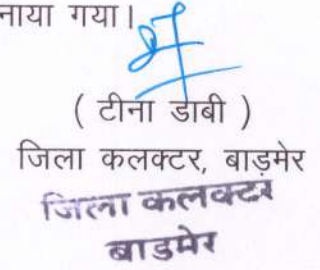 नाया गया।
( टीना डाबी )
जिला कलक्टर, बाड़मेर
जिला कलक्टर
बाडमेर